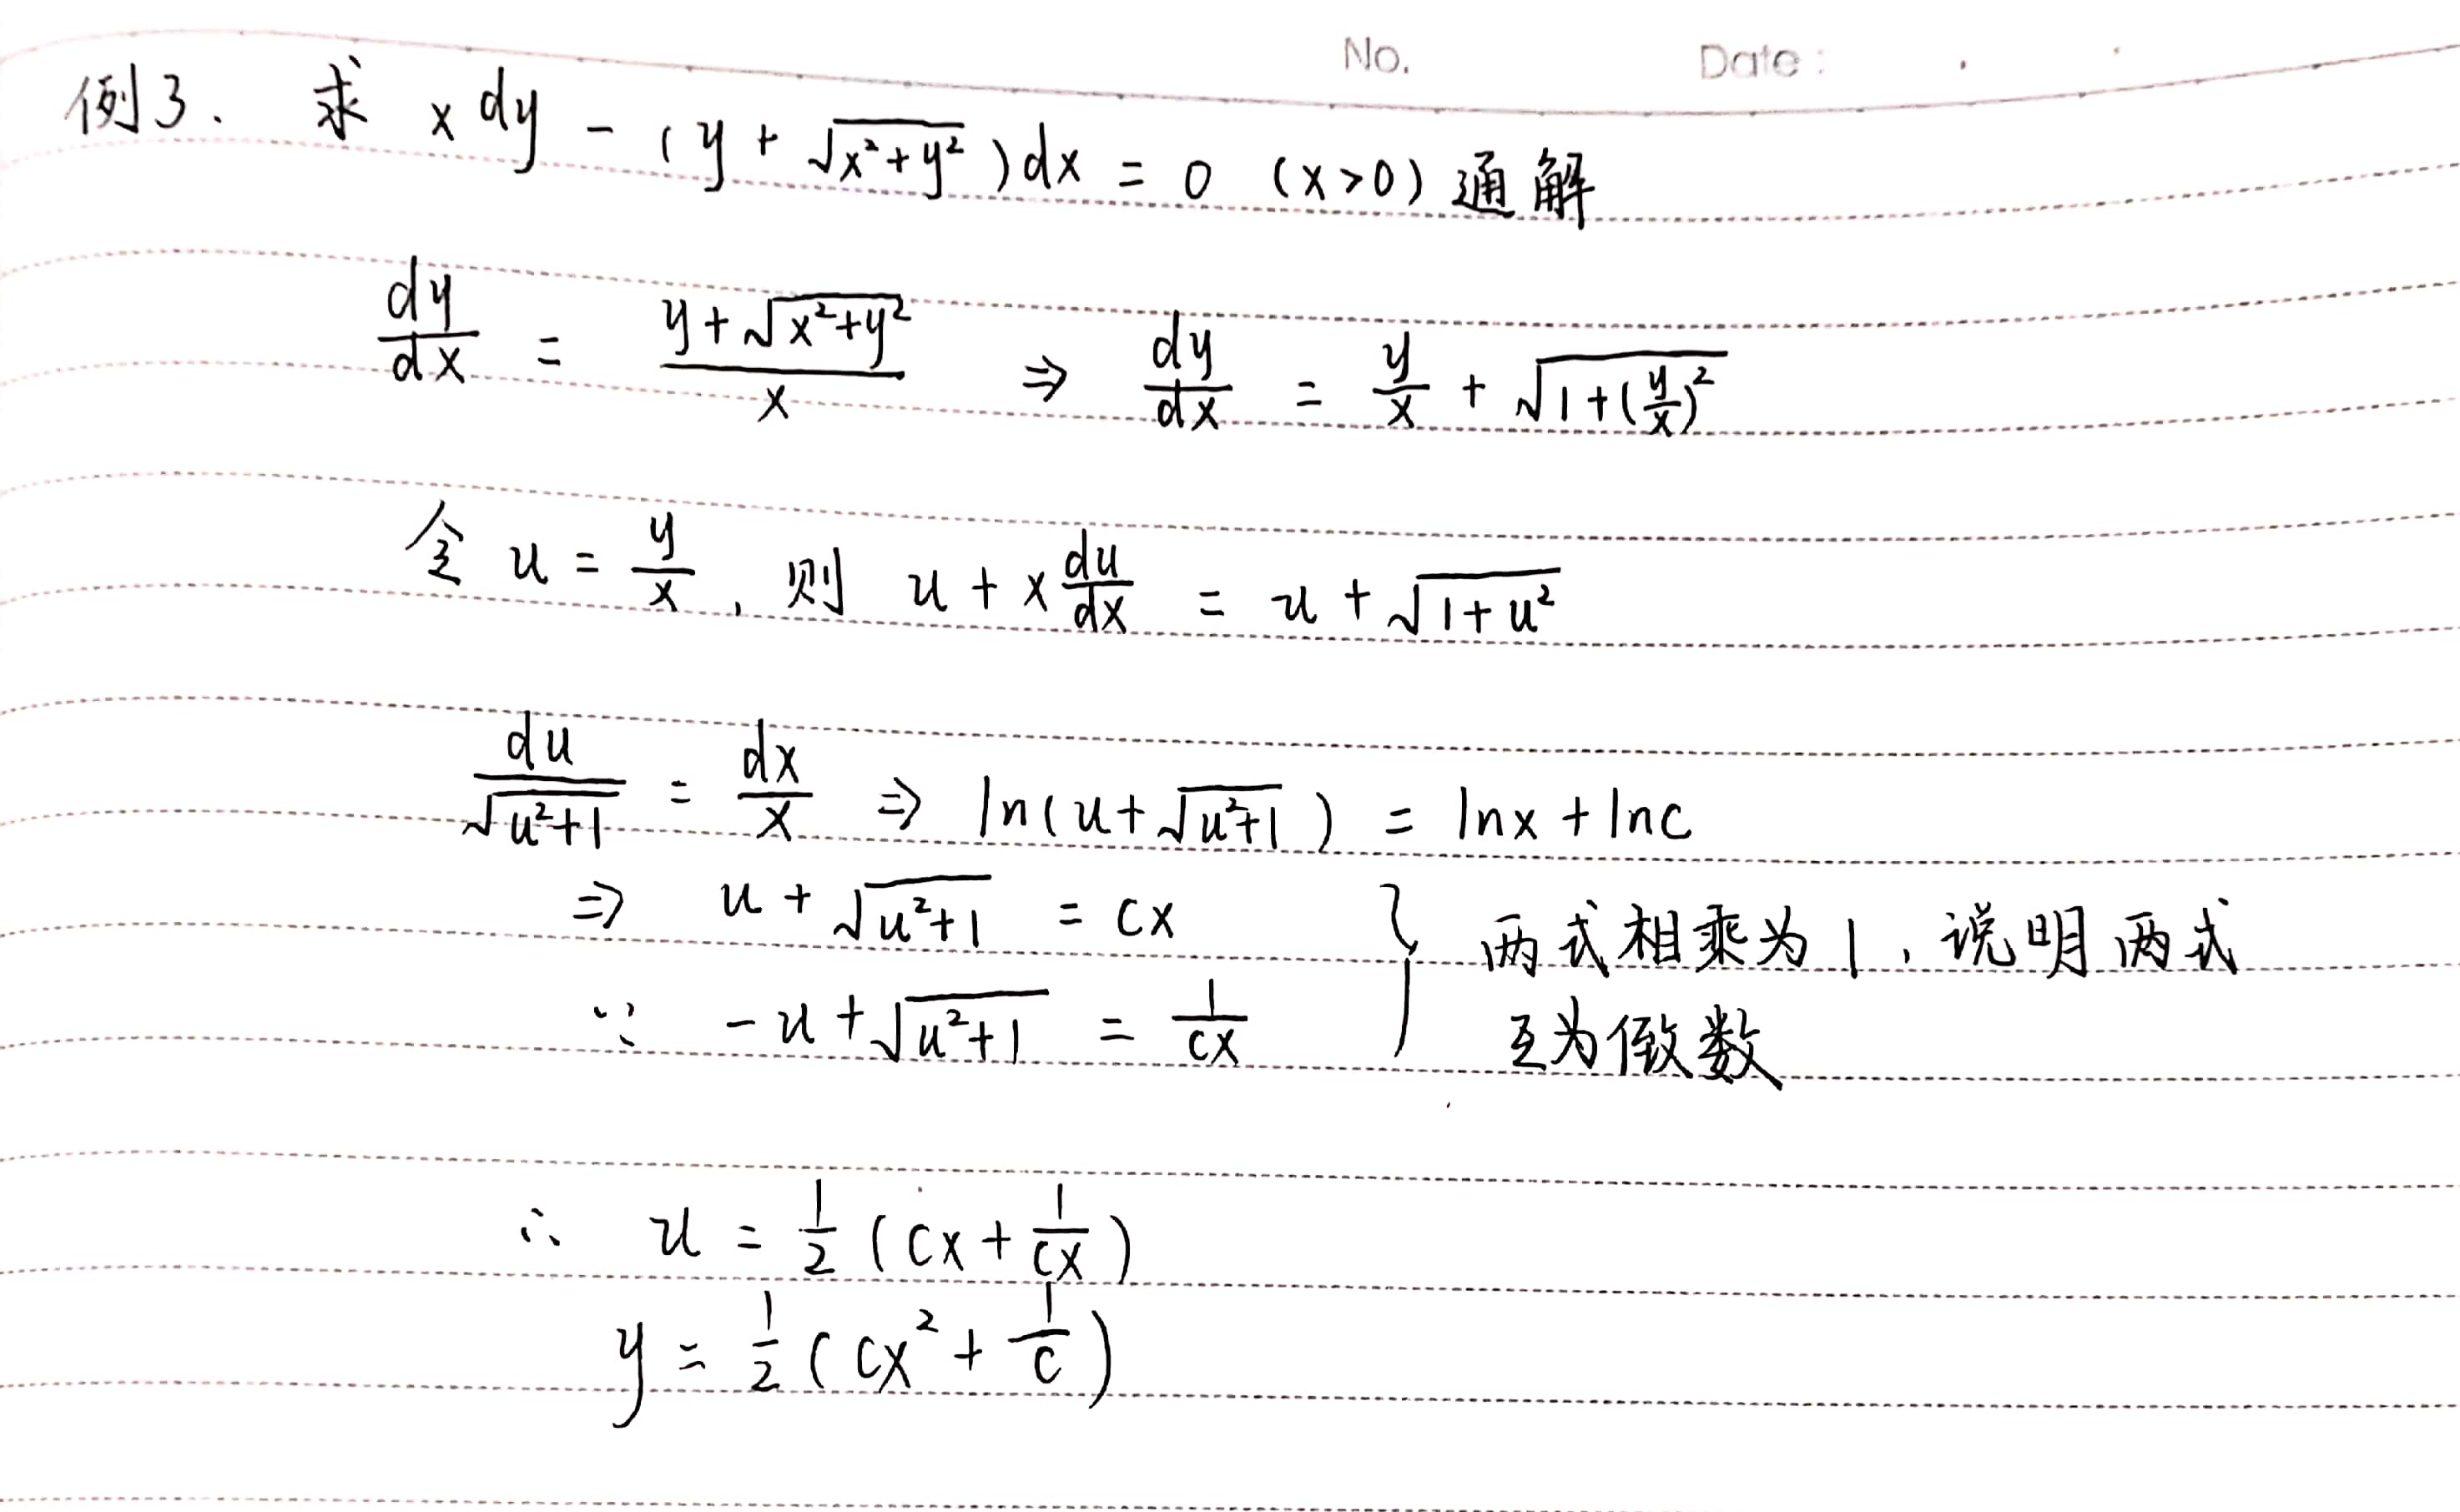 No. Date:
例3. 求 x dy - (y + √(x²+y²))dx = 0 (x>0) 通解
dy/dx = (y+√(x²+y²))/x ⇒ dy/dx = y/x + √(1+(y/x)²)
令 u = y/x, 则 u + x du/dx = u + √(1+u²)
du/√(u²+1) = dx/x ⇒ ln(u+√(u²+1)) = lnx + lnc
⇒ u + √(u²+1) = cx
∵ -u + √(u²+1) = 1/(cx)
} 两式相乘为1, 说明两式
互为倒数
∴ u = 1/2 (cx + 1/(cx))
y = 1/2 (cx² + 1/c)